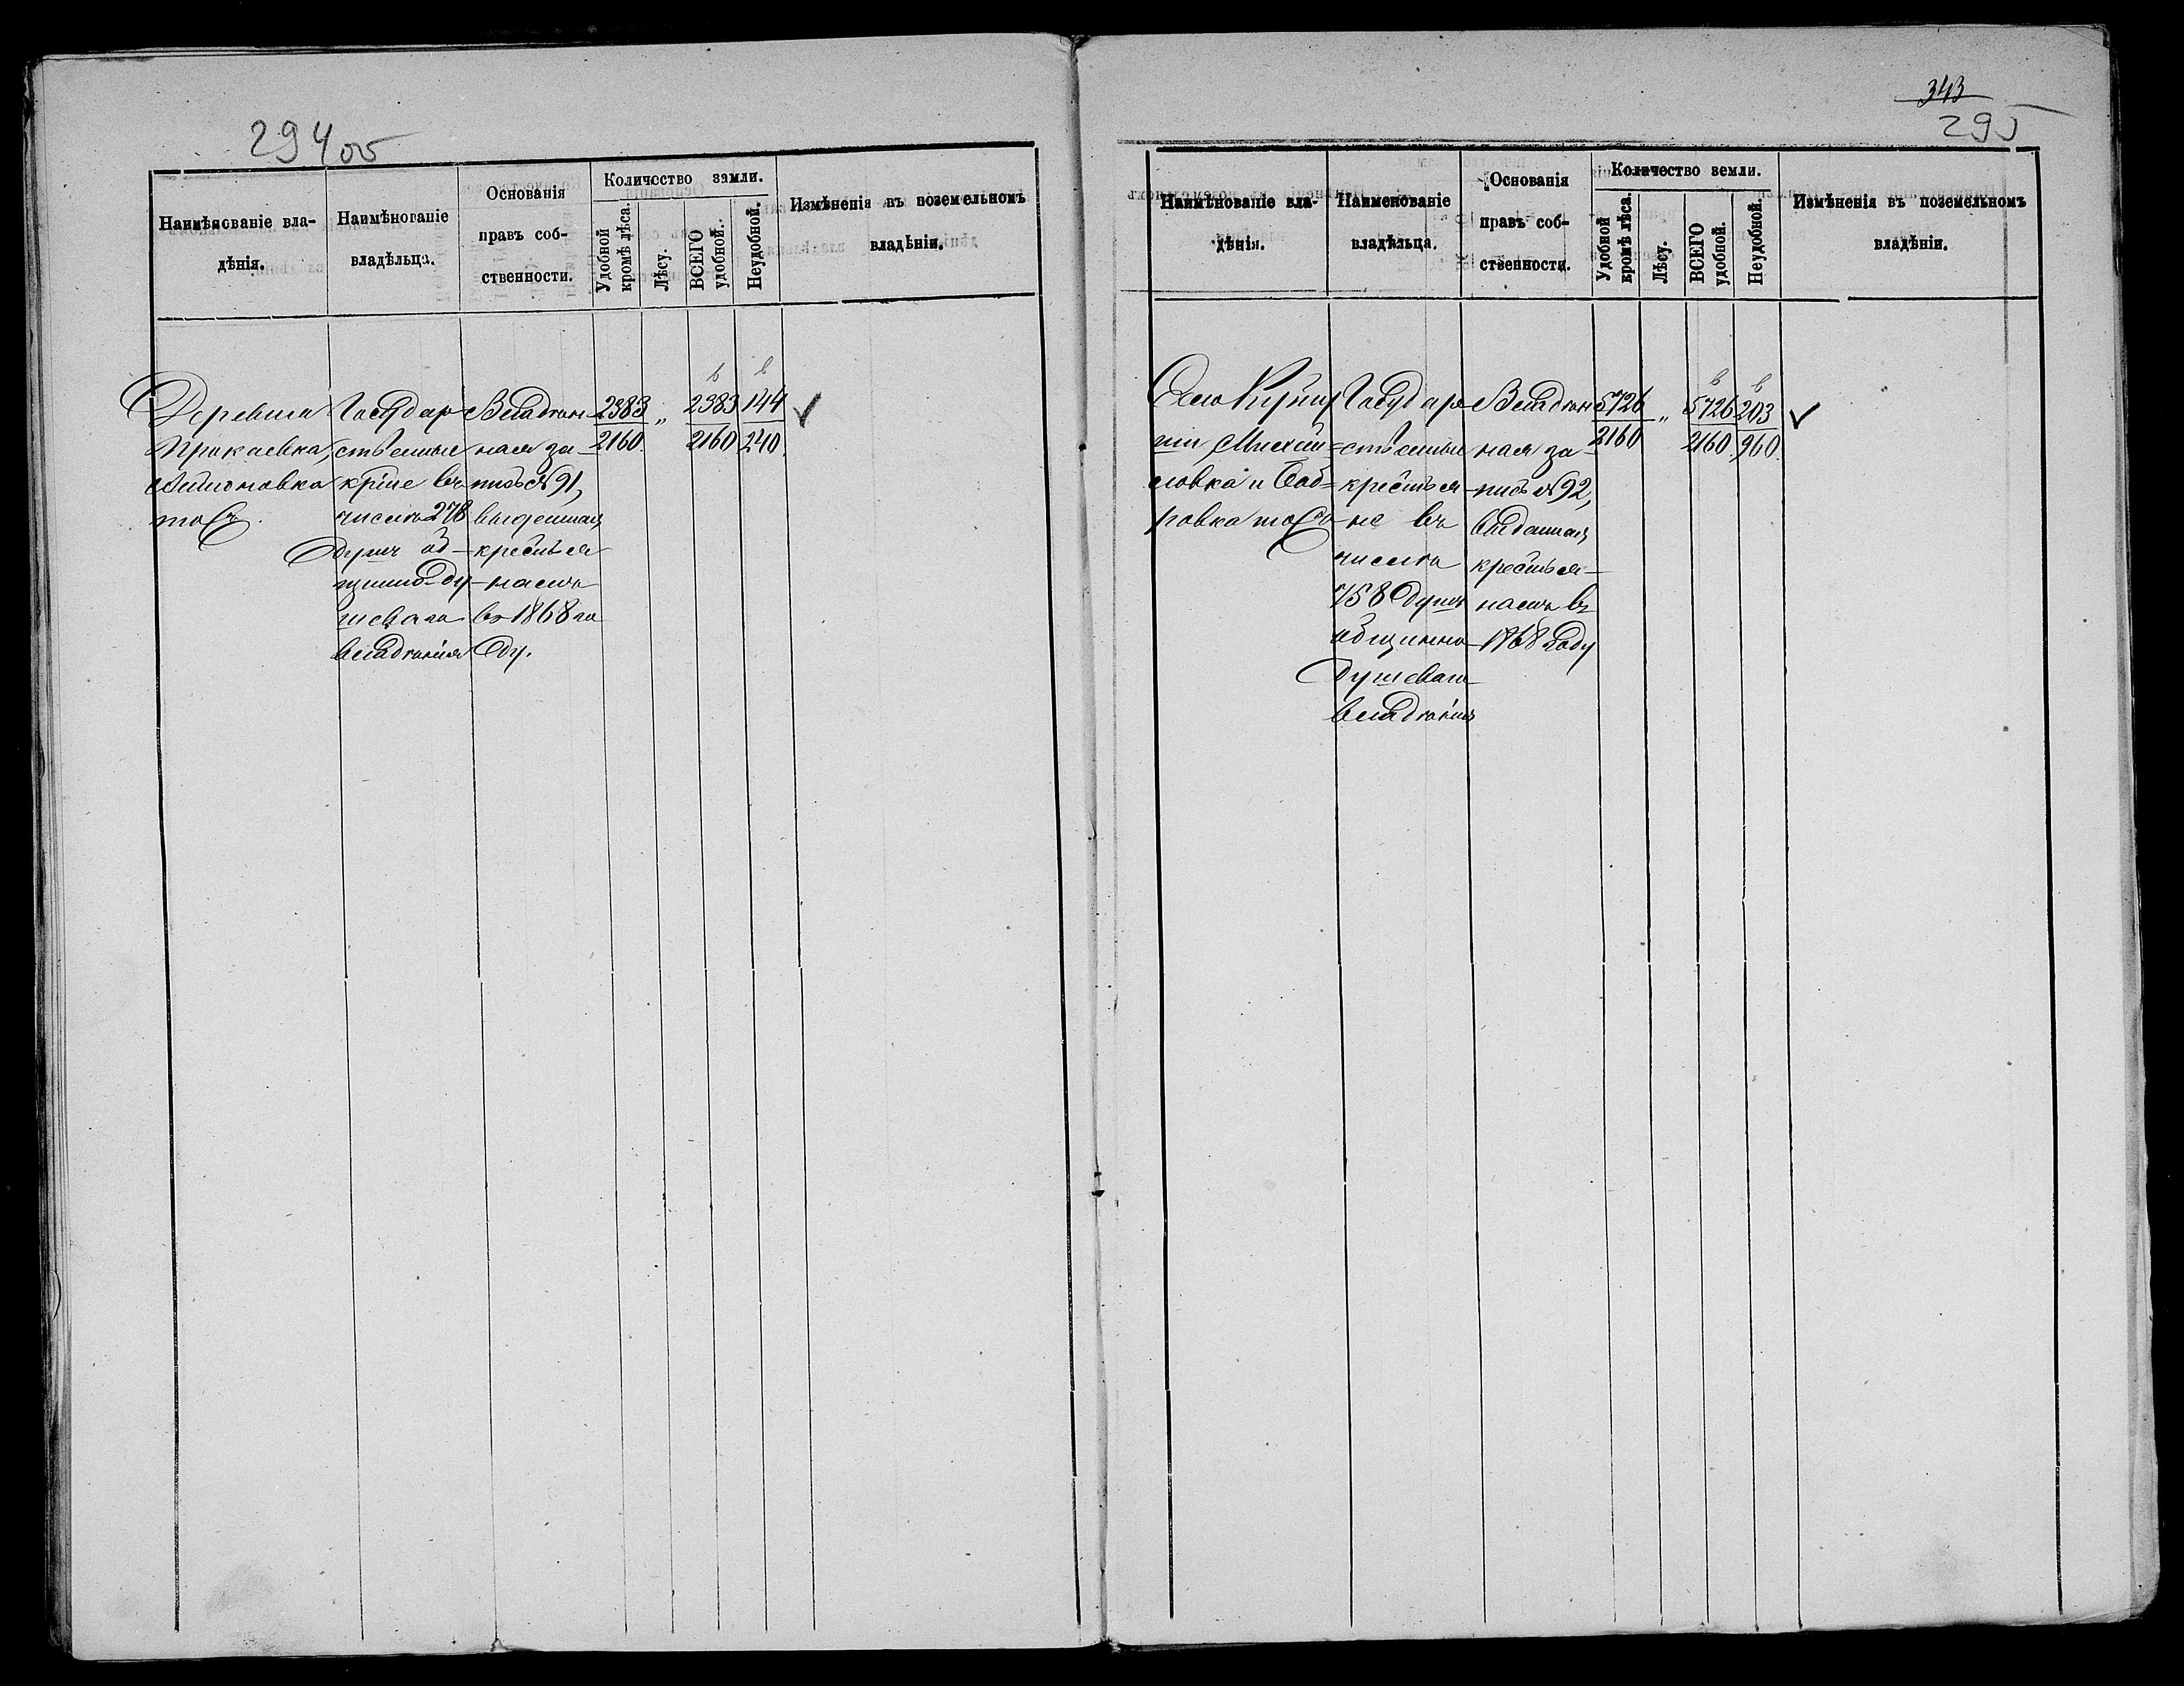 294 об
Наимѣнованіе вла-
дѣнія.
Наимѣнованіе
владѣльца.
Основанія
правъ соб-
ственности.
Количество земли.
Удобной
кромѣ лѣса.
Лѣсу.
ВСЕГО
удобной.
Неудобной.
Измѣненія въ поземельномъ
владѣніи.
Деревня
Прокаевка,
Филионовка
тоСъ.
Государ-
ственные
кр̃не въ
числѣ 278
душъ об-
щинно-ду-
шеваго
владѣнія
Владѣн-
ная за-
пись №91,
выданная
крестья-
намъ
въ 1868 го
ду.
2383
2160
„
в
2383
2160
в
144
240
343
295
Наимѣнованіе вла-
дѣнія.
Наименованіе
владѣльца.
Основанія
правъ соб-
ственности.
Количество земли.
Удобной
кромѣ лѣса.
Лѣсу.
ВСЕГО
удобной.
Неудобной.
Измѣненія въ поземельномъ
владѣніи.
Село
и Боб-
ровка тоСъ
Государ-
ственные
крестья-
не въ
числѣ
758 душъ
общинно-
душеваго
владѣнія
Владѣн-
ная за-
пись №92,
выданная
крестья-
намъ въ
1868 году
5726
2160
„
в
5726
2160
в
203
960